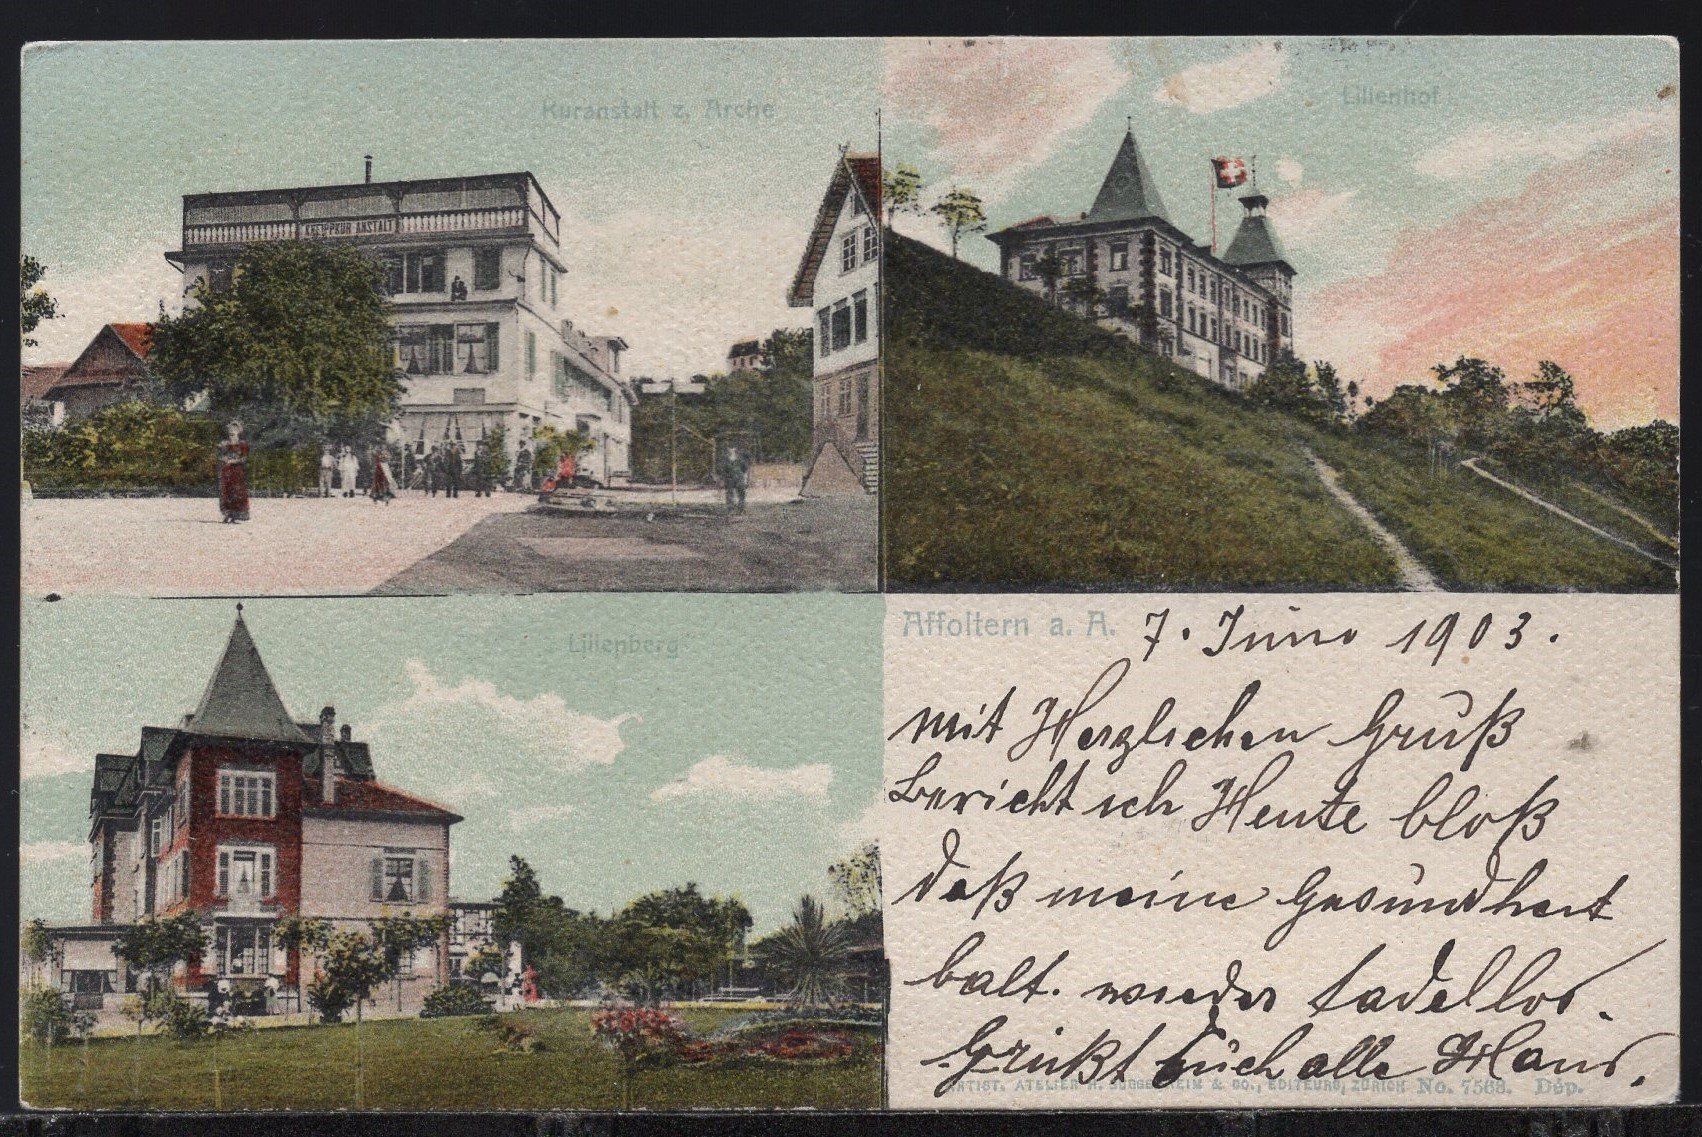 Kuranstalt z. Arche
KNEIPPKUR ANSTALT
Lilienhof
Lilienberg
Affoltern a. A. 7. Juni 1903.
mit Herzlichen Gruß
bericht ich Heute bloß
daß meine Gesundheit
balt. wieder tadellos.
Grüßt Euch alle Hans.
ARTIST. ATELIER H. GUGGENHEIM & CO., EDITEURS, ZÜRICH No. 7568. Dép.